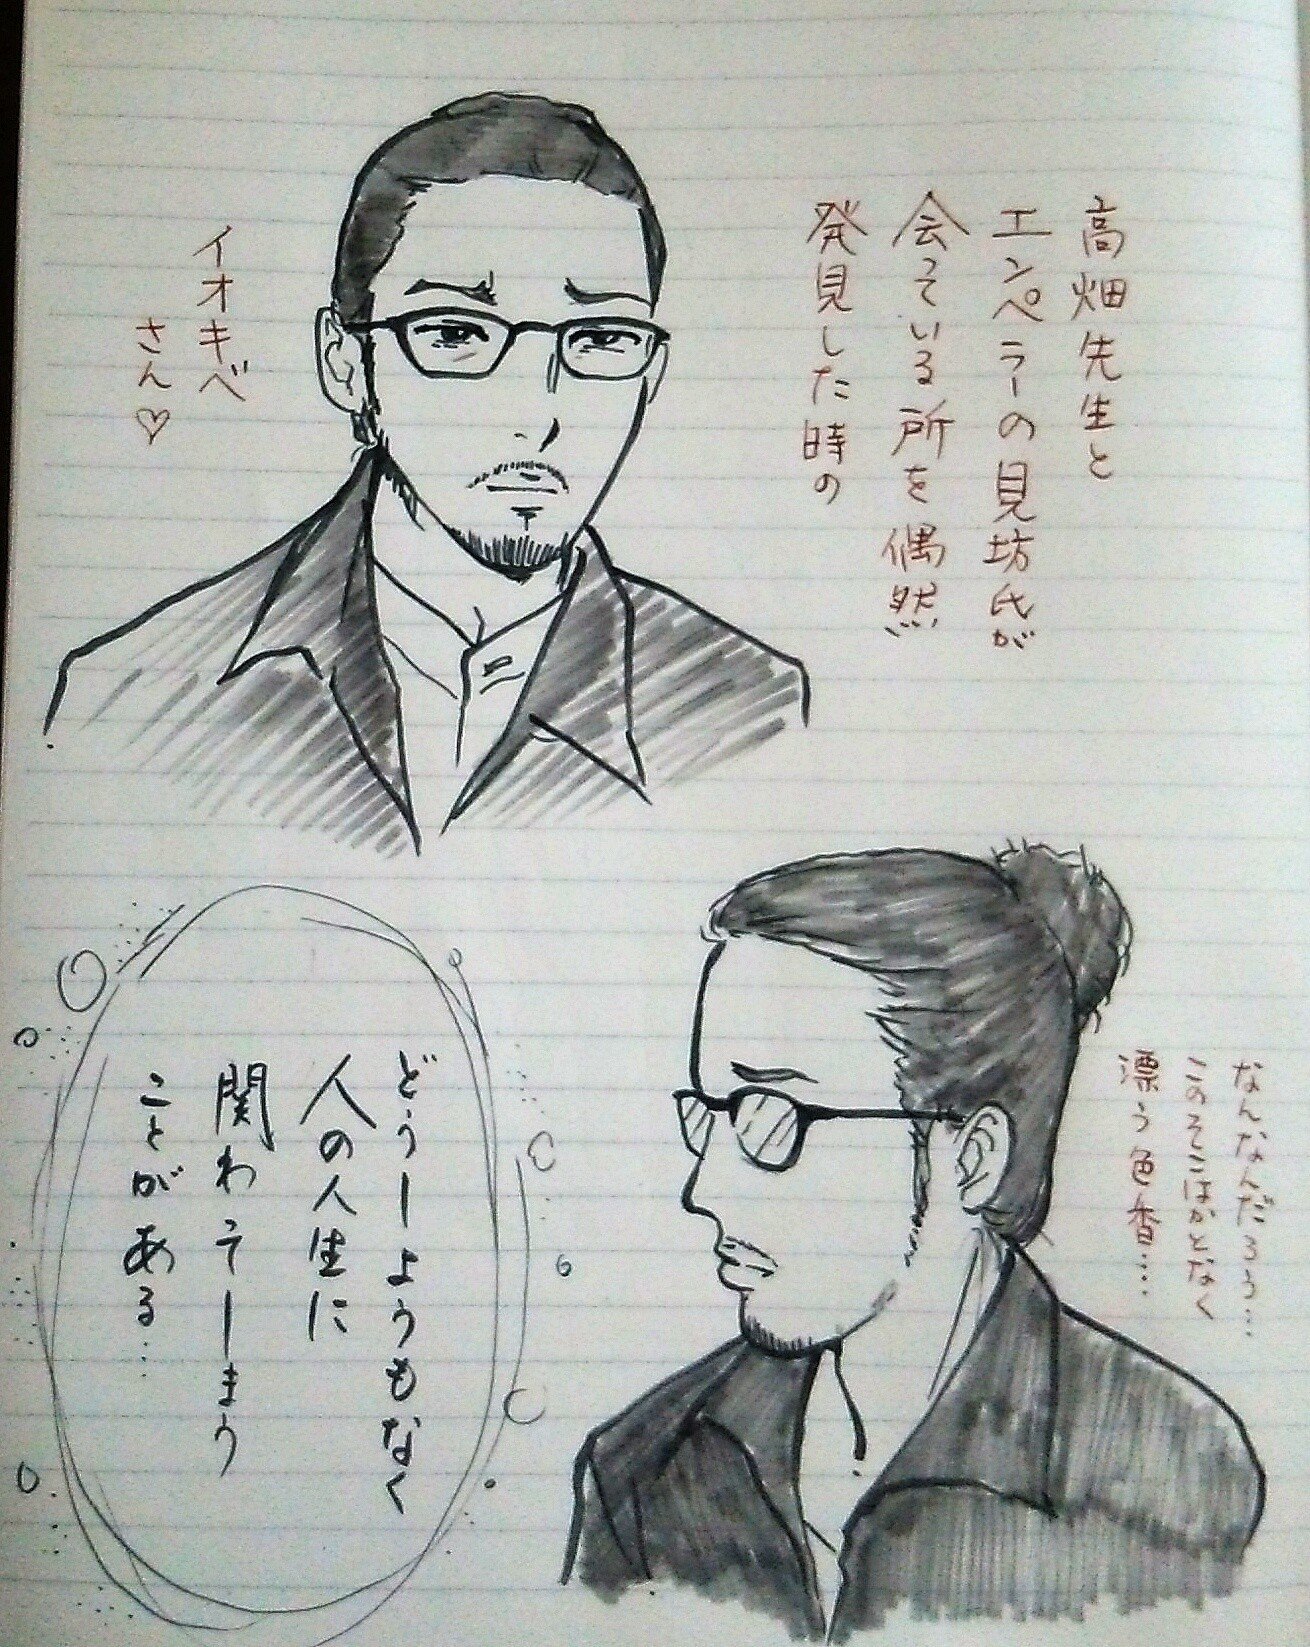 高畑先生と
エンペラーの見坊氏が
会ている所を偶然
発見した時の
イオキベ
さん♡
なんなんだろう…
このそこはかとなく
漂う色香…
どうしようもなく
人の人生に
関わってしまう
ことがある…